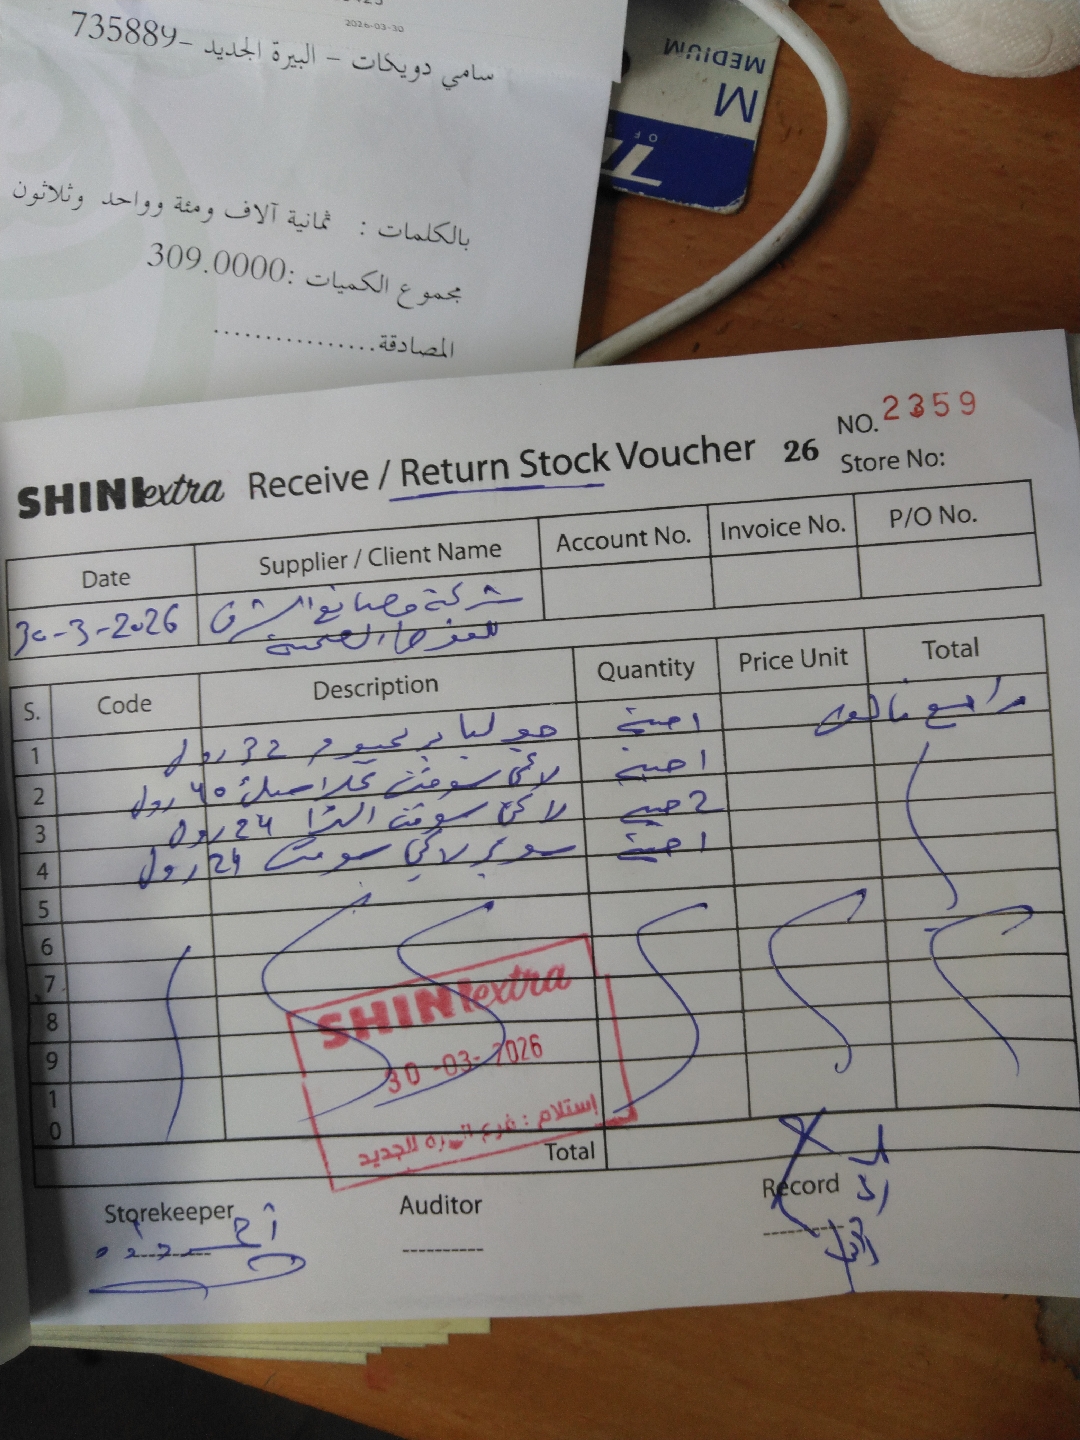 2026-03-30
سامي دويكات - البيرة الجديد -735889
بالكلمات : ثمانية آلاف ومئة وواحد وثلاثون
مجموع الكميات :309.0000
المصادقة................
MEDIUM
M
SHINI extra Receive / Return Stock Voucher 26
NO. 2359
Store No:
Date Supplier / Client Name Account No. Invoice No. P/O No.
30-3-2026 شركة مصانع الشرق
للفوط الصحية
S. Code Description Quantity Price Unit Total
1 جوليا بريميوم 32 رول 1 حبة راجع تالف
2 لاكي سوفت كلاسيك 40 رول 1 حبة
3 لاكي سوفت الترا 24 رول 2 حبة
4 سوبر لاكي سوفت 24 رول 1 حبة
5
6
7
8
9
10
SHINI extra
30-03-2026
إستلام : فرع البيره الجديد
Total
Storekeeper Auditor Record